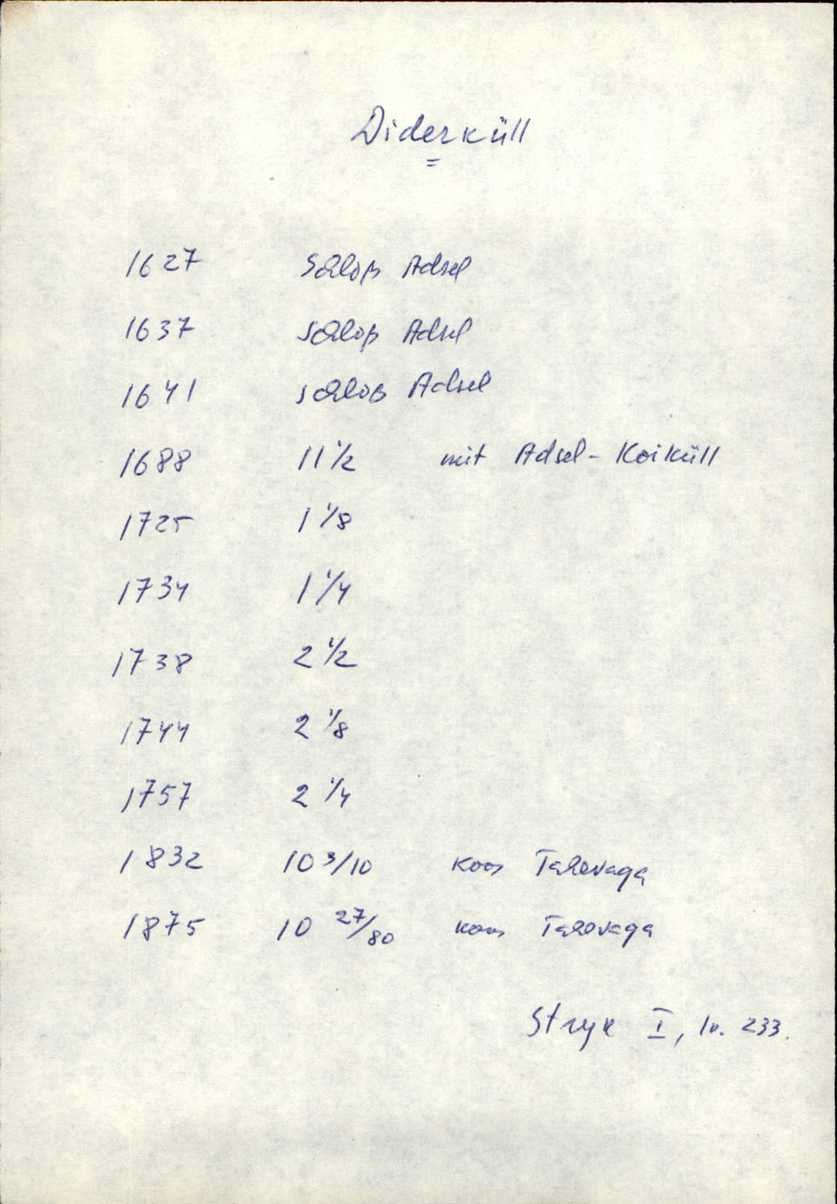 Diderküll
1627 Schloß Adsel
1637 Schloß Adsel
1641 Schloß Adsel
1688 11 1/2 mit Adsel-Koiküll
1725 1 1/8
1734 1 1/4
1738 2 1/2
1744 2 1/8
1757 2 1/4
1832 10 3/10 koos Tahevaga
1875 10 27/80 koos Tahevaga
Stryk I, lv. 233.